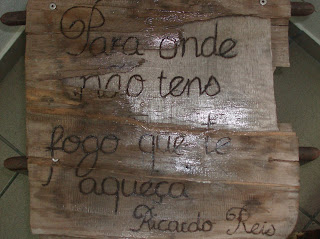 Para onde
não tens
fogo que te
aqueça
Ricardo Reis